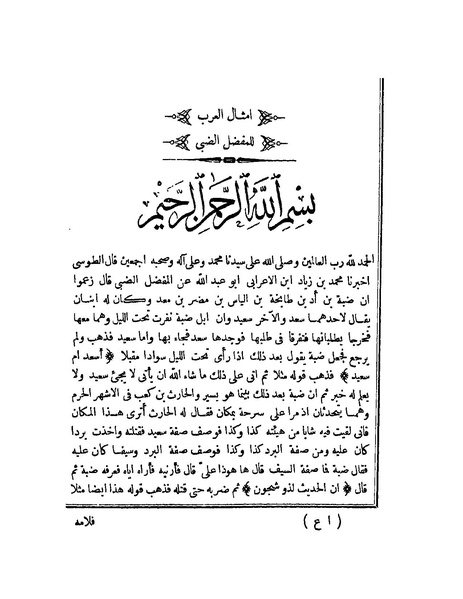 امثال العرب
للمفضل الضبي
بسم الله الرحمن الرحيم
الحمد لله رب العالمين وصلى الله على سيدنا محمد وعلى آله وصحبه اجمعين قال الطوسي
اخبرنا محمد بن زياد ابن الاعرابي ابو عبد الله عن المفضل الضبي قال زعموا
ان ضبة بن أد بن طابخة بن الياس بن مضر بن معد وكان له ابنان
يقال لاحدهما سعد والآخر سعيد وان ابل ضبة نفرت تحت الليل وهما معها
فخرجا يطلبانها فتفرقا فى طلبها فوجدها سعد فجاء بها واما سعيد فذهب ولم
يرجع فجعل ضبة يقول بعد ذلك اذا رأى تحت الليل سوادا مقبلا ﴿ أسعد ام
سعيد ﴾ فذهب قوله مثلا ثم اتى على ذلك ما شاء الله ان يأتى لا يجئ سعيد ولا
يعلم له خبر ثم ان ضبة بعد ذلك بينما هو يسير والحارث بن كعب فى الاشهر الحرم
وهما يتحدثان اذ مرا على سرحة بمكان فقال له الحارث أترى هذا المكان
فانى لقيت فيه شابا من هيئته كذا وكذا فوصف صفة سعيد فقتلته واخذت بردا
كان عليه ومن صفة البرد كذا وكذا فوصف صفة البرد وسيفا كان عليه
فقال ضبة فما صفة السيف قال ها هوذا علىّ قال فأرنيه فأراه اياه فعرفه ضبة ثم
قال ﴿ ان الحديث لذو شجون ﴾ ثم ضربه حتى قتله فذهب قوله هذا ايضا مثلا
( ١ ع ) فلامه